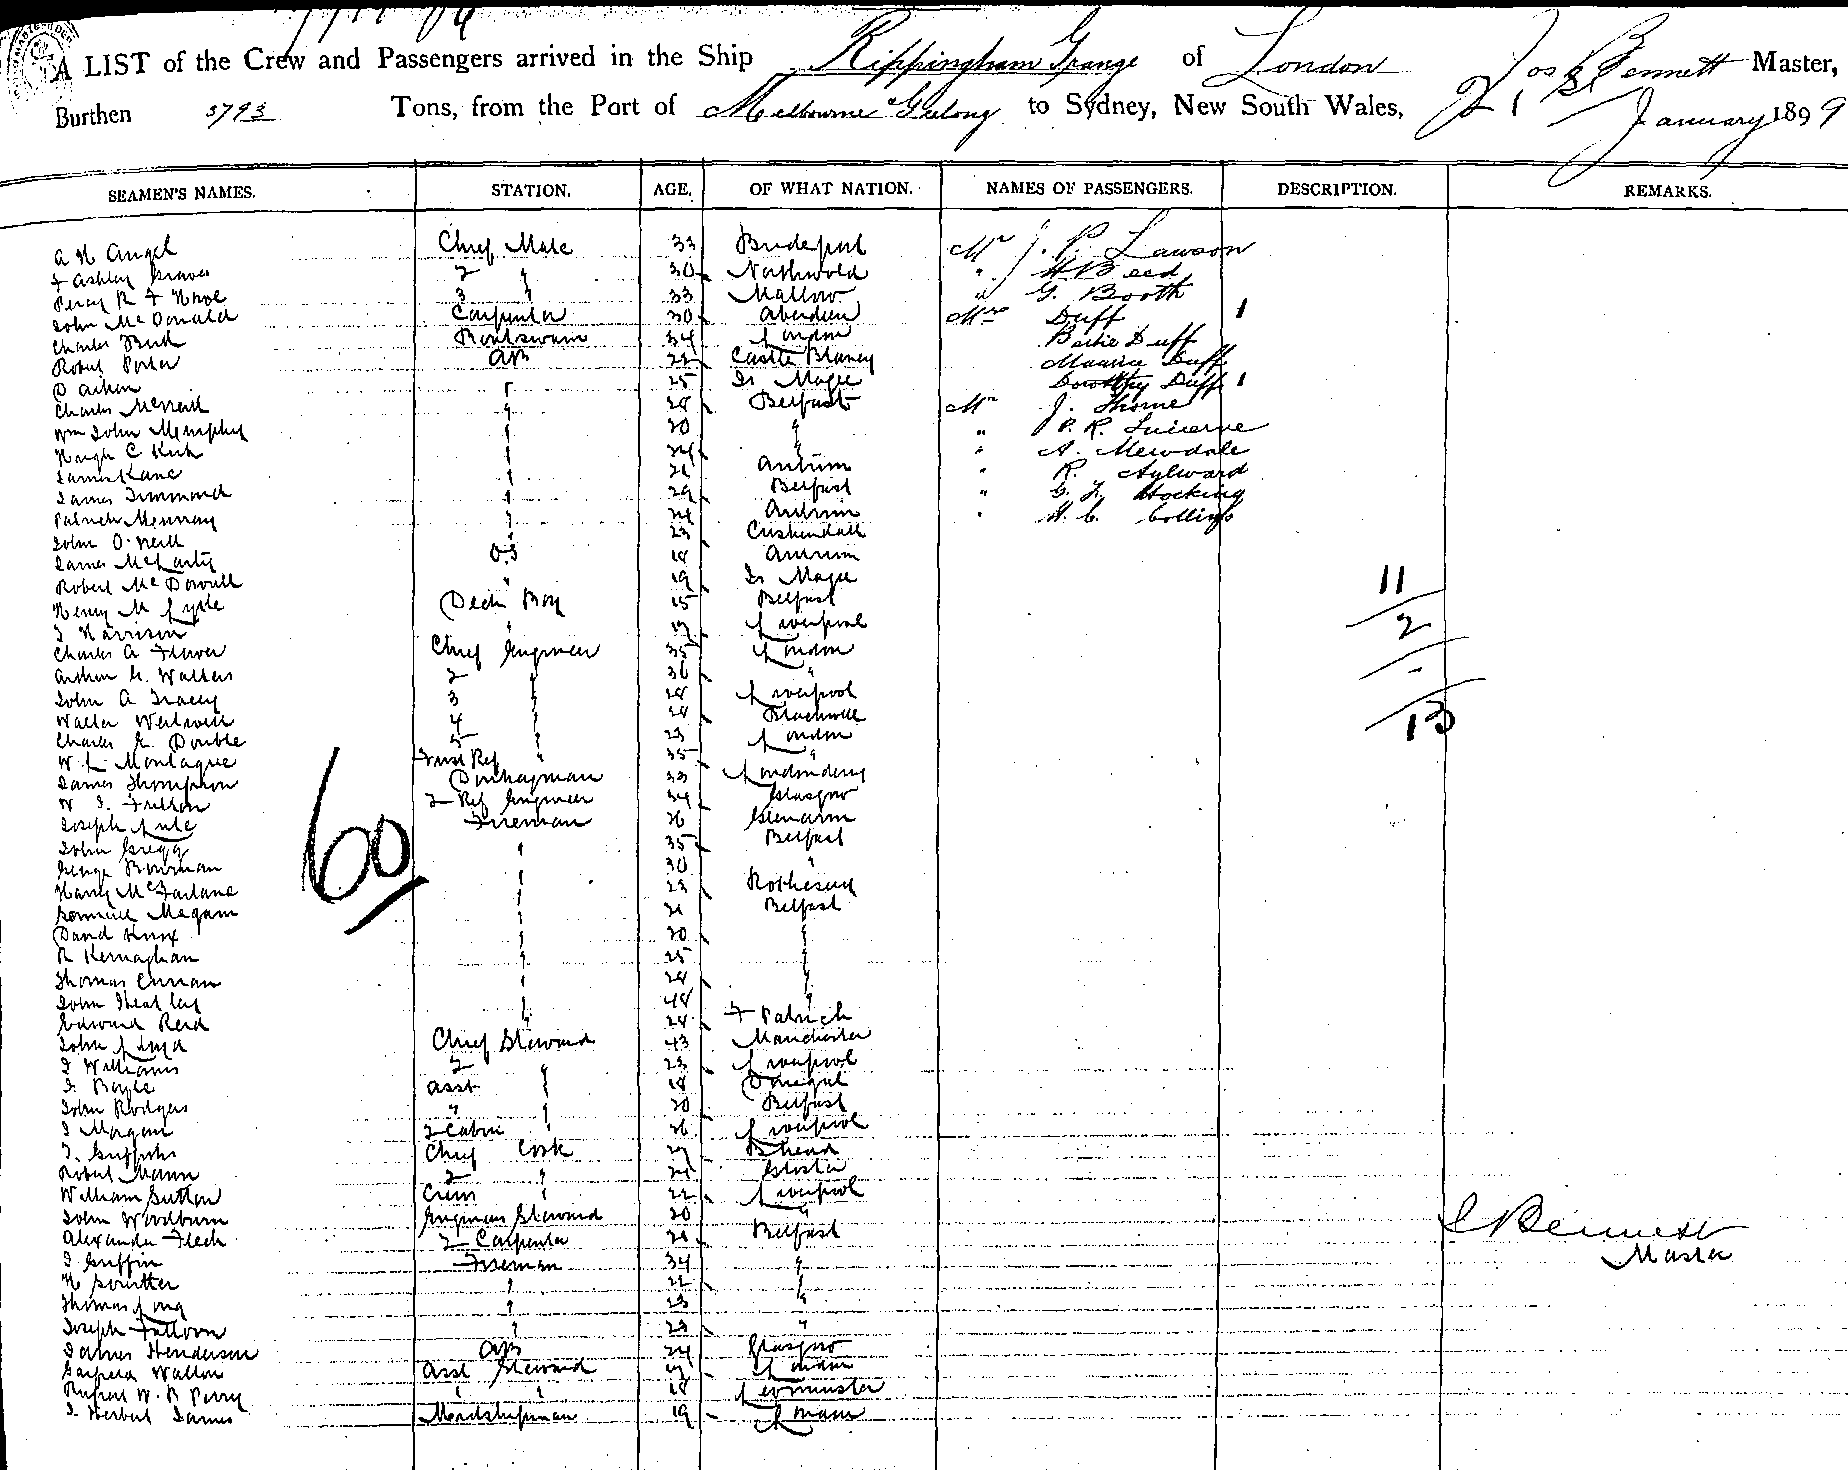 A LIST of the Crew and Passengers arrived in the Ship Rippingham Grange of London Jos Bennett Master,
Burthen 5793 Tons, from the Port of Melbourne Geelong to Sydney, New South Wales, 2 January 1899
SEAMEN'S NAMES. STATION. AGE. OF WHAT NATION. NAMES OF PASSENGERS. DESCRIPTION. REMARKS.
A H Angel Chief Mate 33 Brideport Mr J. P. Lawson
F Ashley Graves 2 " 30 Northwold " H Beed
Percy R F 3 " 33 Mallow " G. Booth
John McDonald Carpenter 30 Aberdeen Mrs Duff 1
Charles Bird Boatswain 34 London Duff
Robert Porter AB 22 Castle Blaney Maurice Duff
D " 25 Is Magee Dorothy Duff 1
Charles McNeill " 28 Belfast Mr J. Thorne
Wm John " 20 " " P. R. Lucerne
Hugh C Kirk " 24 " " A. Mewdale
James Kane " 21 Antrim " R. Aylward
James " 29 Belfast " G. L. Hocking
Patrick " 24 Antrim " H. C. Collings
John O'Neill " 23 Cushendall
James McCarty O.S 18 Antrim
Robert McDowell " 19 Is Magee
Henry M Lyle Deck Boy 15 Belfast
Harrison " 17 Liverpool
Charles A Flower Chief Engineer 35 London
Arthur G. Walters 2 " 36 "
John A Tracey 3 " 28 Liverpool
Walter 4 " 28 Blackwall
Charles E. Double 5 " 23 London
W L Montague First Ref " 35 "
James Thompson Donkeyman 33 Londonderry
W Fulton 2 Ref Engineer 34 Glasgow
Joseph Lyle Fireman 26 Glenarm
John Gregg " 35 Belfast
George Bowman " 30 "
Harry McFarlane " 23 Rothesay
Magam " 21 Belfast
David Knox " 20 "
R Kernaghan " 25 "
Thomas Curran " 28 "
John Heatley " 48 "
Edward Reid " 28 F Patrick
John Chief Steward 43 Manchester
J Williams 2 " 23 Liverpool
J. Boyle Asst " 18 Donegal
John Rodgers " " 20 Belfast
J Morgan 2 Cabin " 26 Liverpool
T. Griffiths Chief Cook 27 Bhead
Robert Mann 2 " 21 Gloster
William Sutton Crew " 22 Liverpool
John Woodburn Engineers Steward 20 "
Alexander Fleck 2 Carpenter 21 Belfast
J Griffin Fireman 34 "
H Souther " 22 "
Thomas Long " 23 "
Joseph Falloon " 23 "
James Henderson AB 24 Glasgow
Walton Asst Steward 17 London
Rupert W. R Perry " " 18 Leominster
J Herbert James Midshipman 19 London
11
2
-
13
60
J Bennett
Master